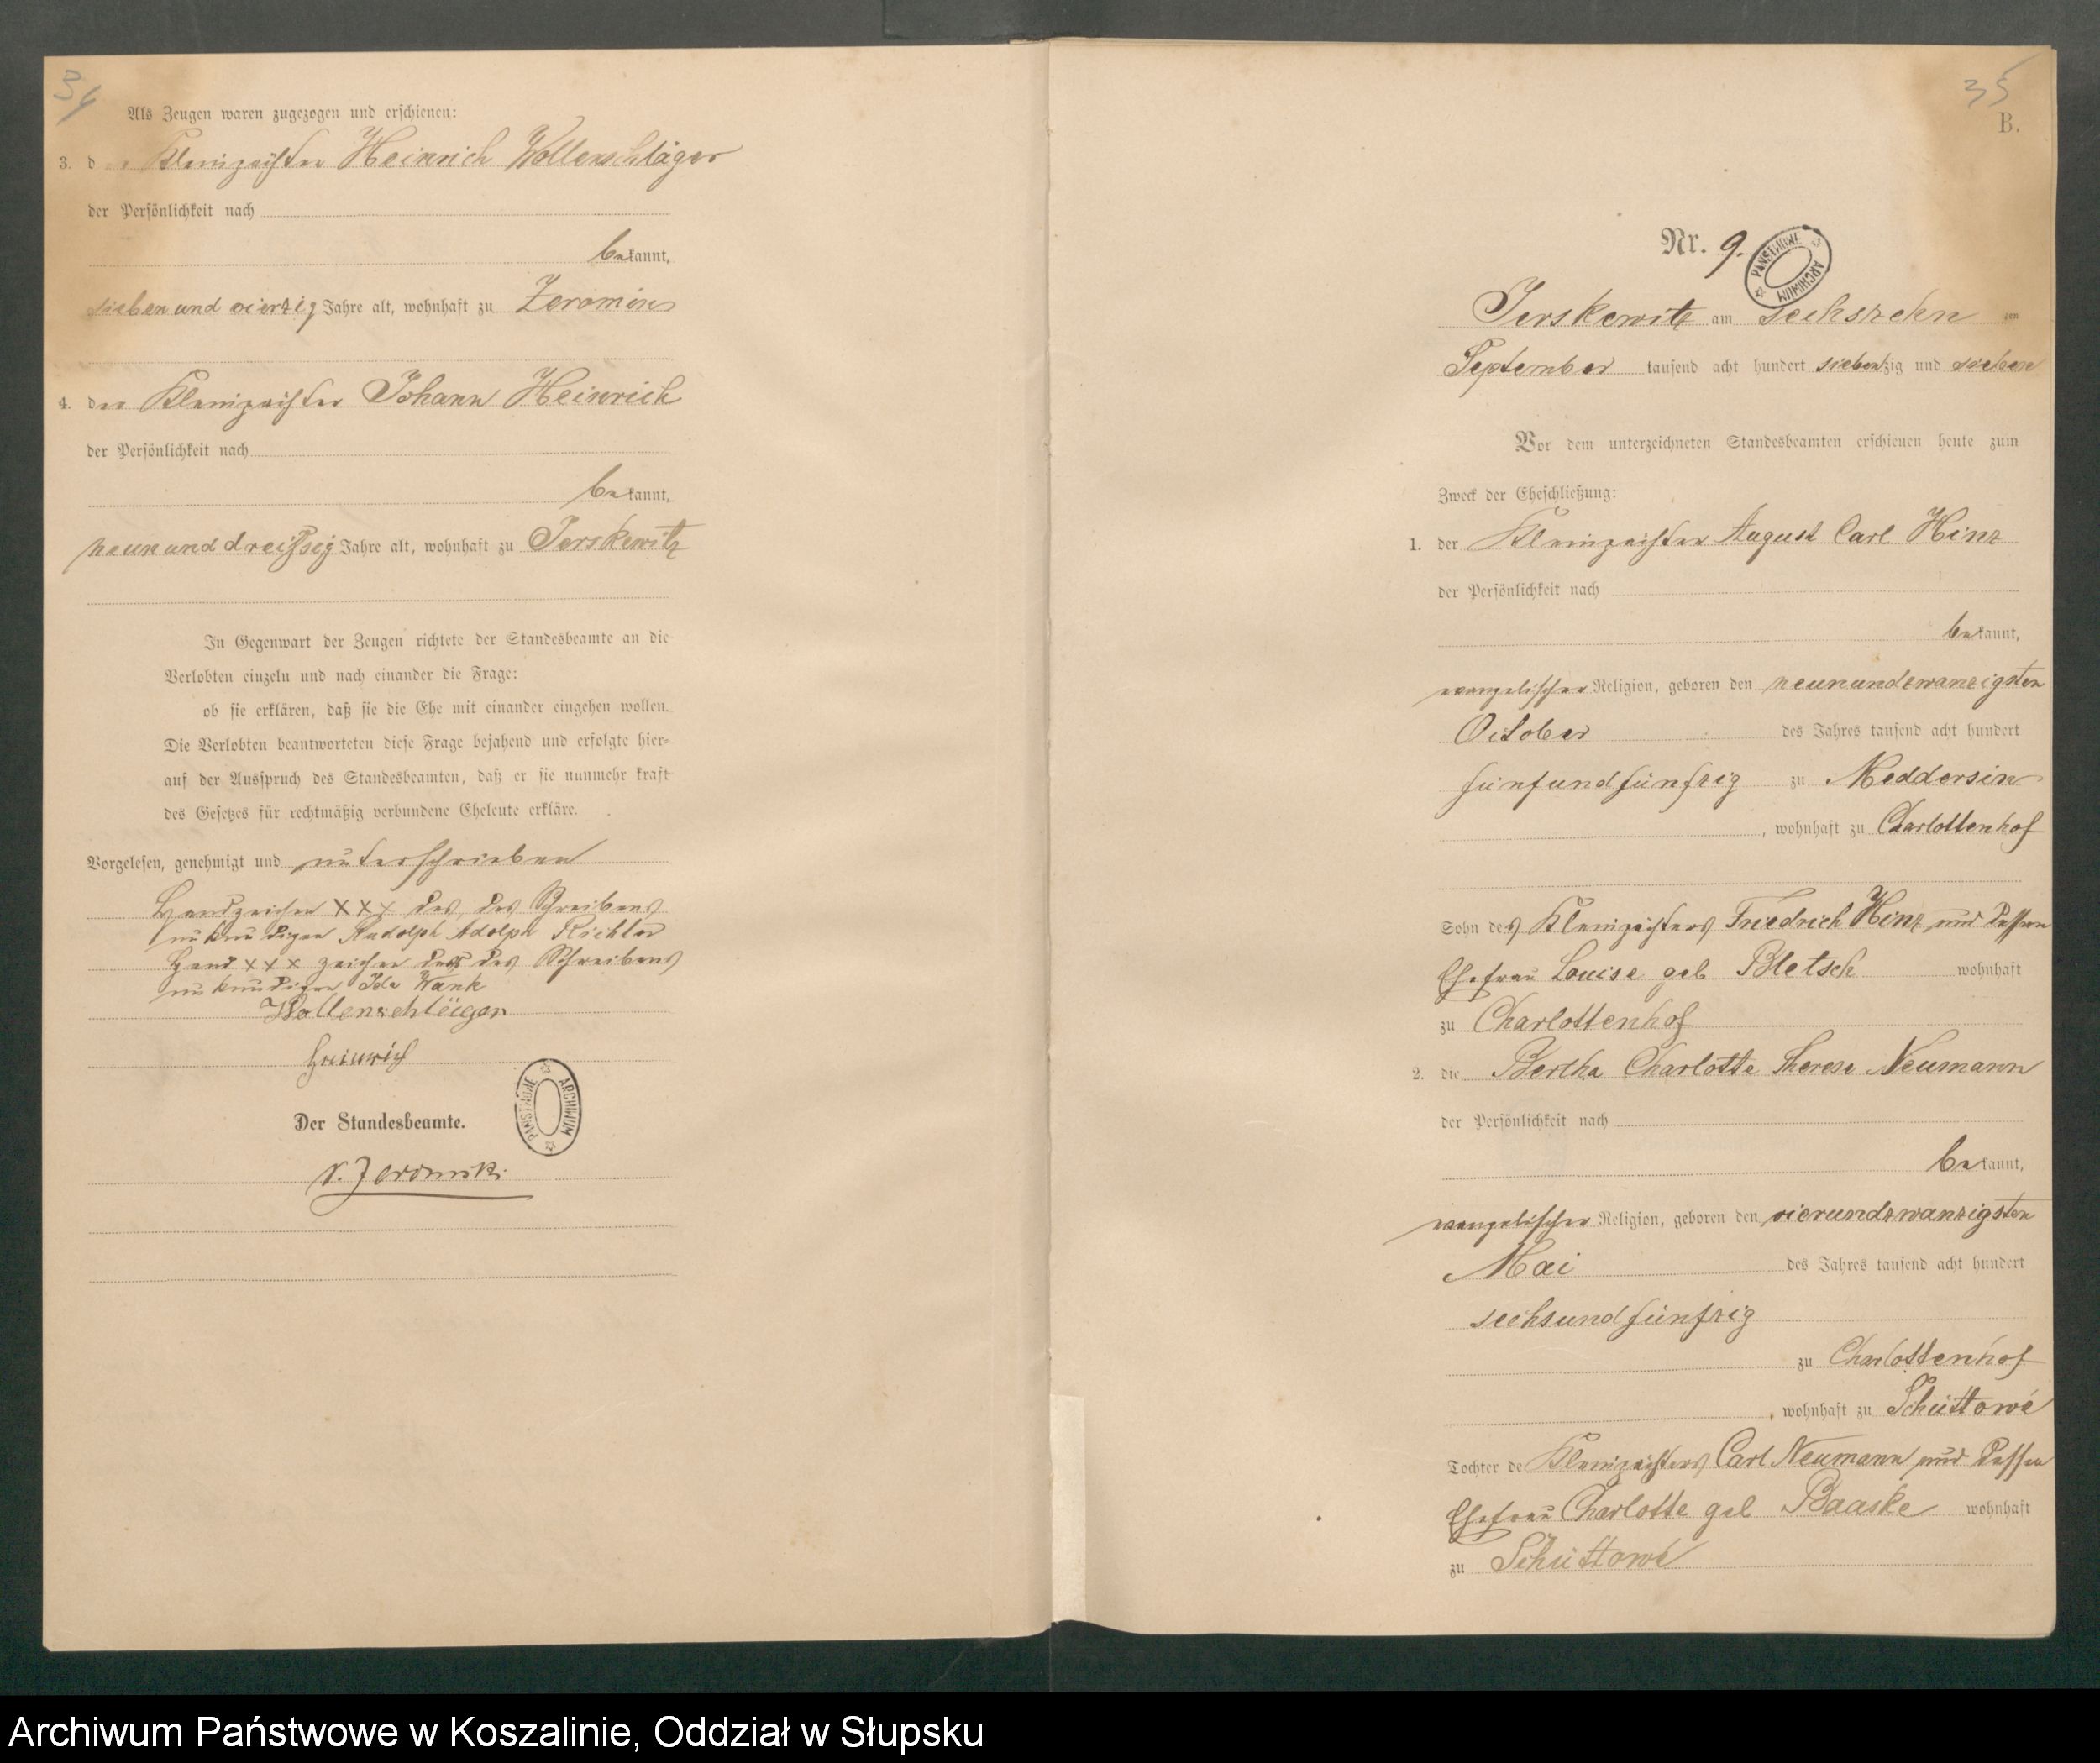 34
Als Zeugen waren zugezogen und erschienen:
3. der Kleinpächter Heinrich Wollenschläger
der Persönlichkeit nach
bekannt,
siebenundvierzig Jahre alt, wohnhaft zu Zeromin
4. der Kleinpächter Johann Heinrich
der Persönlichkeit nach
bekannt,
neununddreißsig Jahre alt, wohnhaft zu Jerskewitz
In Gegenwart der Zeugen richtete der Standesbeamte an die
Verlobten einzeln und nach einander die Frage:
ob sie erklären, daß sie die Ehe mit einander eingehen wollen.
Die Verlobten beantworteten diese Frage bejahend und erfolgte hier-
auf der Ausspruch des Standesbeamten, daß er sie nunmehr kraft
des Gesetzes für rechtmäßig verbundene Eheleute erkläre.
Vorgelesen, genehmigt und unterschrieben
Handzeichen XXX des, des Schreibens
unkundigen Rudolph Adolph Richter
Hand xxx zeichen der des Schreibens
unkundigen Ida Wank
Wollenschläger
Heinrich
Der Standesbeamte.
PAŃSTWOWE ARCHIWUM
v. Zeromski
35
B.
Nr. 9.
PAŃSTWOWE ARCHIWUM
Jerskewitz am sechszehn ten
September tausend acht hundert siebenzig und sieben
Vor dem unterzeichneten Standesbeamten erschienen heute zum
Zweck der Eheschließung:
1. der Kleinpächter August Carl Hinz
der Persönlichkeit nach
bekannt,
evangelischer Religion, geboren den neunundzwanzigsten
October des Jahres tausend acht hundert
fünfundfünfzig zu Meddersin
, wohnhaft zu Charlottenhof
Sohn des Kleinpächters Friedrich Hinz und dessen
Ehefrau Louise geb Bletsch wohnhaft
zu Charlottenhof
2. die Bertha Charlotte Therese Neumann
der Persönlichkeit nach
bekannt,
evangelischer Religion, geboren den vierundzwanzigsten
Mai des Jahres tausend acht hundert
sechsundfünfzig
zu Charlottenhof
, wohnhaft zu Schüttowé
Tochter de Kleinpächters Carl Neumann und dessen
Ehefrau Charlotte geb Baaske wohnhaft
zu Schüttowé
Archiwum Państwowe w Koszalinie, Oddział w Słupsku